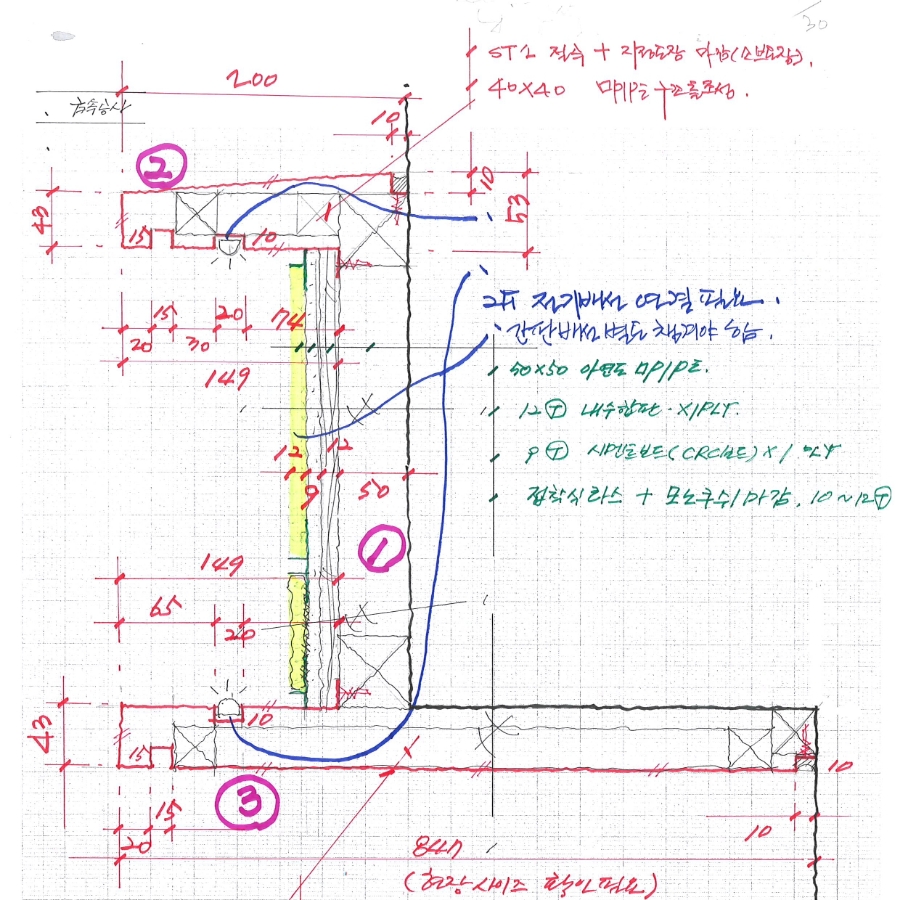 30
ST소 접속 + 지정도장 마감(소부도장).
40×40 MPIPE 구조틀조성.
200
금속상사
10
②
10
43
53
15
10
2F 전기배선 연결 필요.
간단배선 별도 챙겨야 함.
15
20
74
20
30
50×50 아연도 MPIPE.
149
12Ⓣ 내수합판 ×1PLY.
12
12
9Ⓣ 시멘트보드(CRC보드)×1PLY
9
50
접착식라스 + 모노쿠시마감, 10~12Ⓣ
①
149
65
20
43
10
15
10
③
15
20
10
847
(현장사이즈 확인필요)